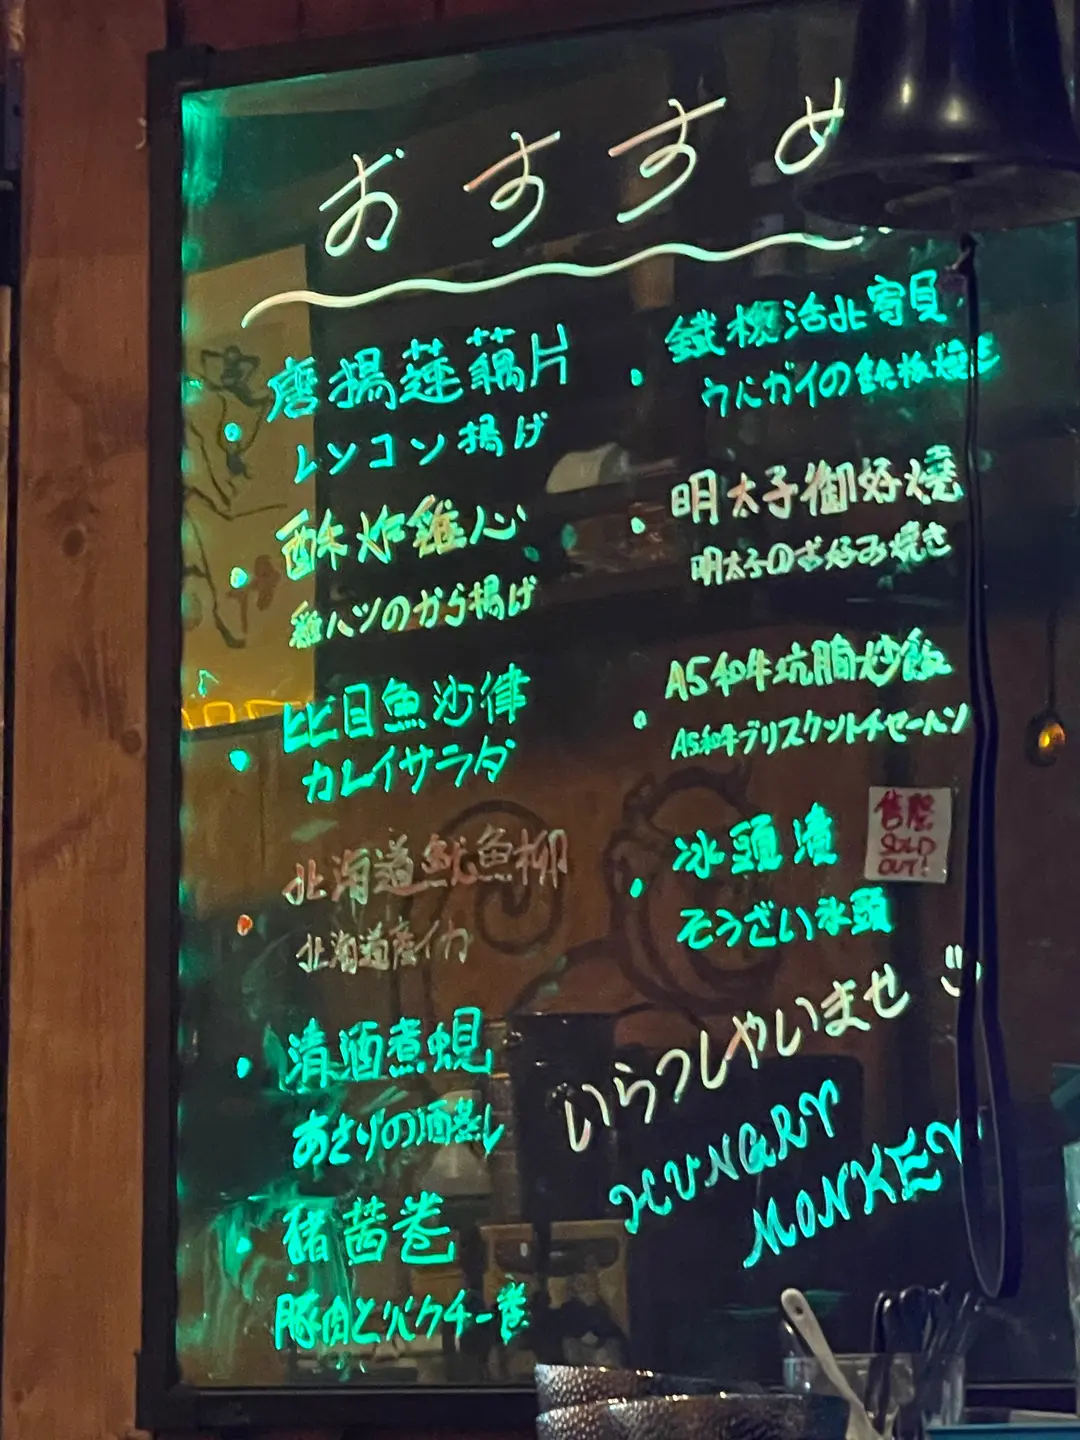 おすすめ
唐揚蓮藕片
レンコン揚げ
酥炸雞心
雞ハツのから揚げ
比目魚沙律
カレイサラダ
北海道魷魚柳
北海道産イカ
清酒煮蜆
あさりの酒蒸し
豬茜巻
豚肉とパクチー巻
鐵板活北寄貝
ウバガイの鉄板焼き
明太子御好燒
明太子のお好み焼き
A5和牛坑腩炒飯
A5和牛ブリスケットチャーハン
冰頭漬
そうざい氷頭
售罄
SOLD
OUT!
いらっしゃいませ
HUNGRY
MONKEY